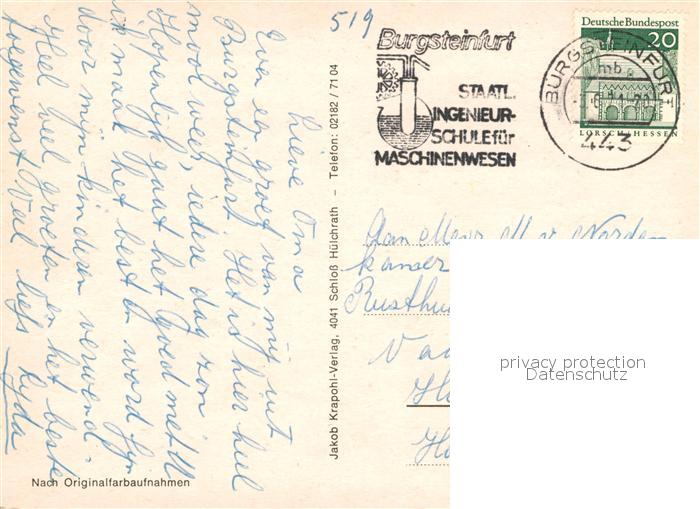 519
Burgsteinfurt
STAATL.
INGENIEUR-
SCHULE für
MASCHINENWESEN
Deutsche Bundespost
20
LORSCH/HESSEN
BURGSTEINFURT
mb
443
Lieve Oma
Even en groet van mij uit
Burgsteinfurt. Het is hier heel
mooi weer, iedere dag zon
Hopenlijk gaat het goed met U
ik maak het best en word fijn
door mijn kinderen verwend.
Heel veel groeten en het beste
toegewenst Veel liefs Lyda
Jakob Krapohl-Verlag, 4041 Schloß Hülchrath – Telefon: 02182 / 71 04
Nach Originalfarbaufnahmen
Aan Mevr M. v. Norden
kamer
Rusthu
privacy protection
Datenschutz